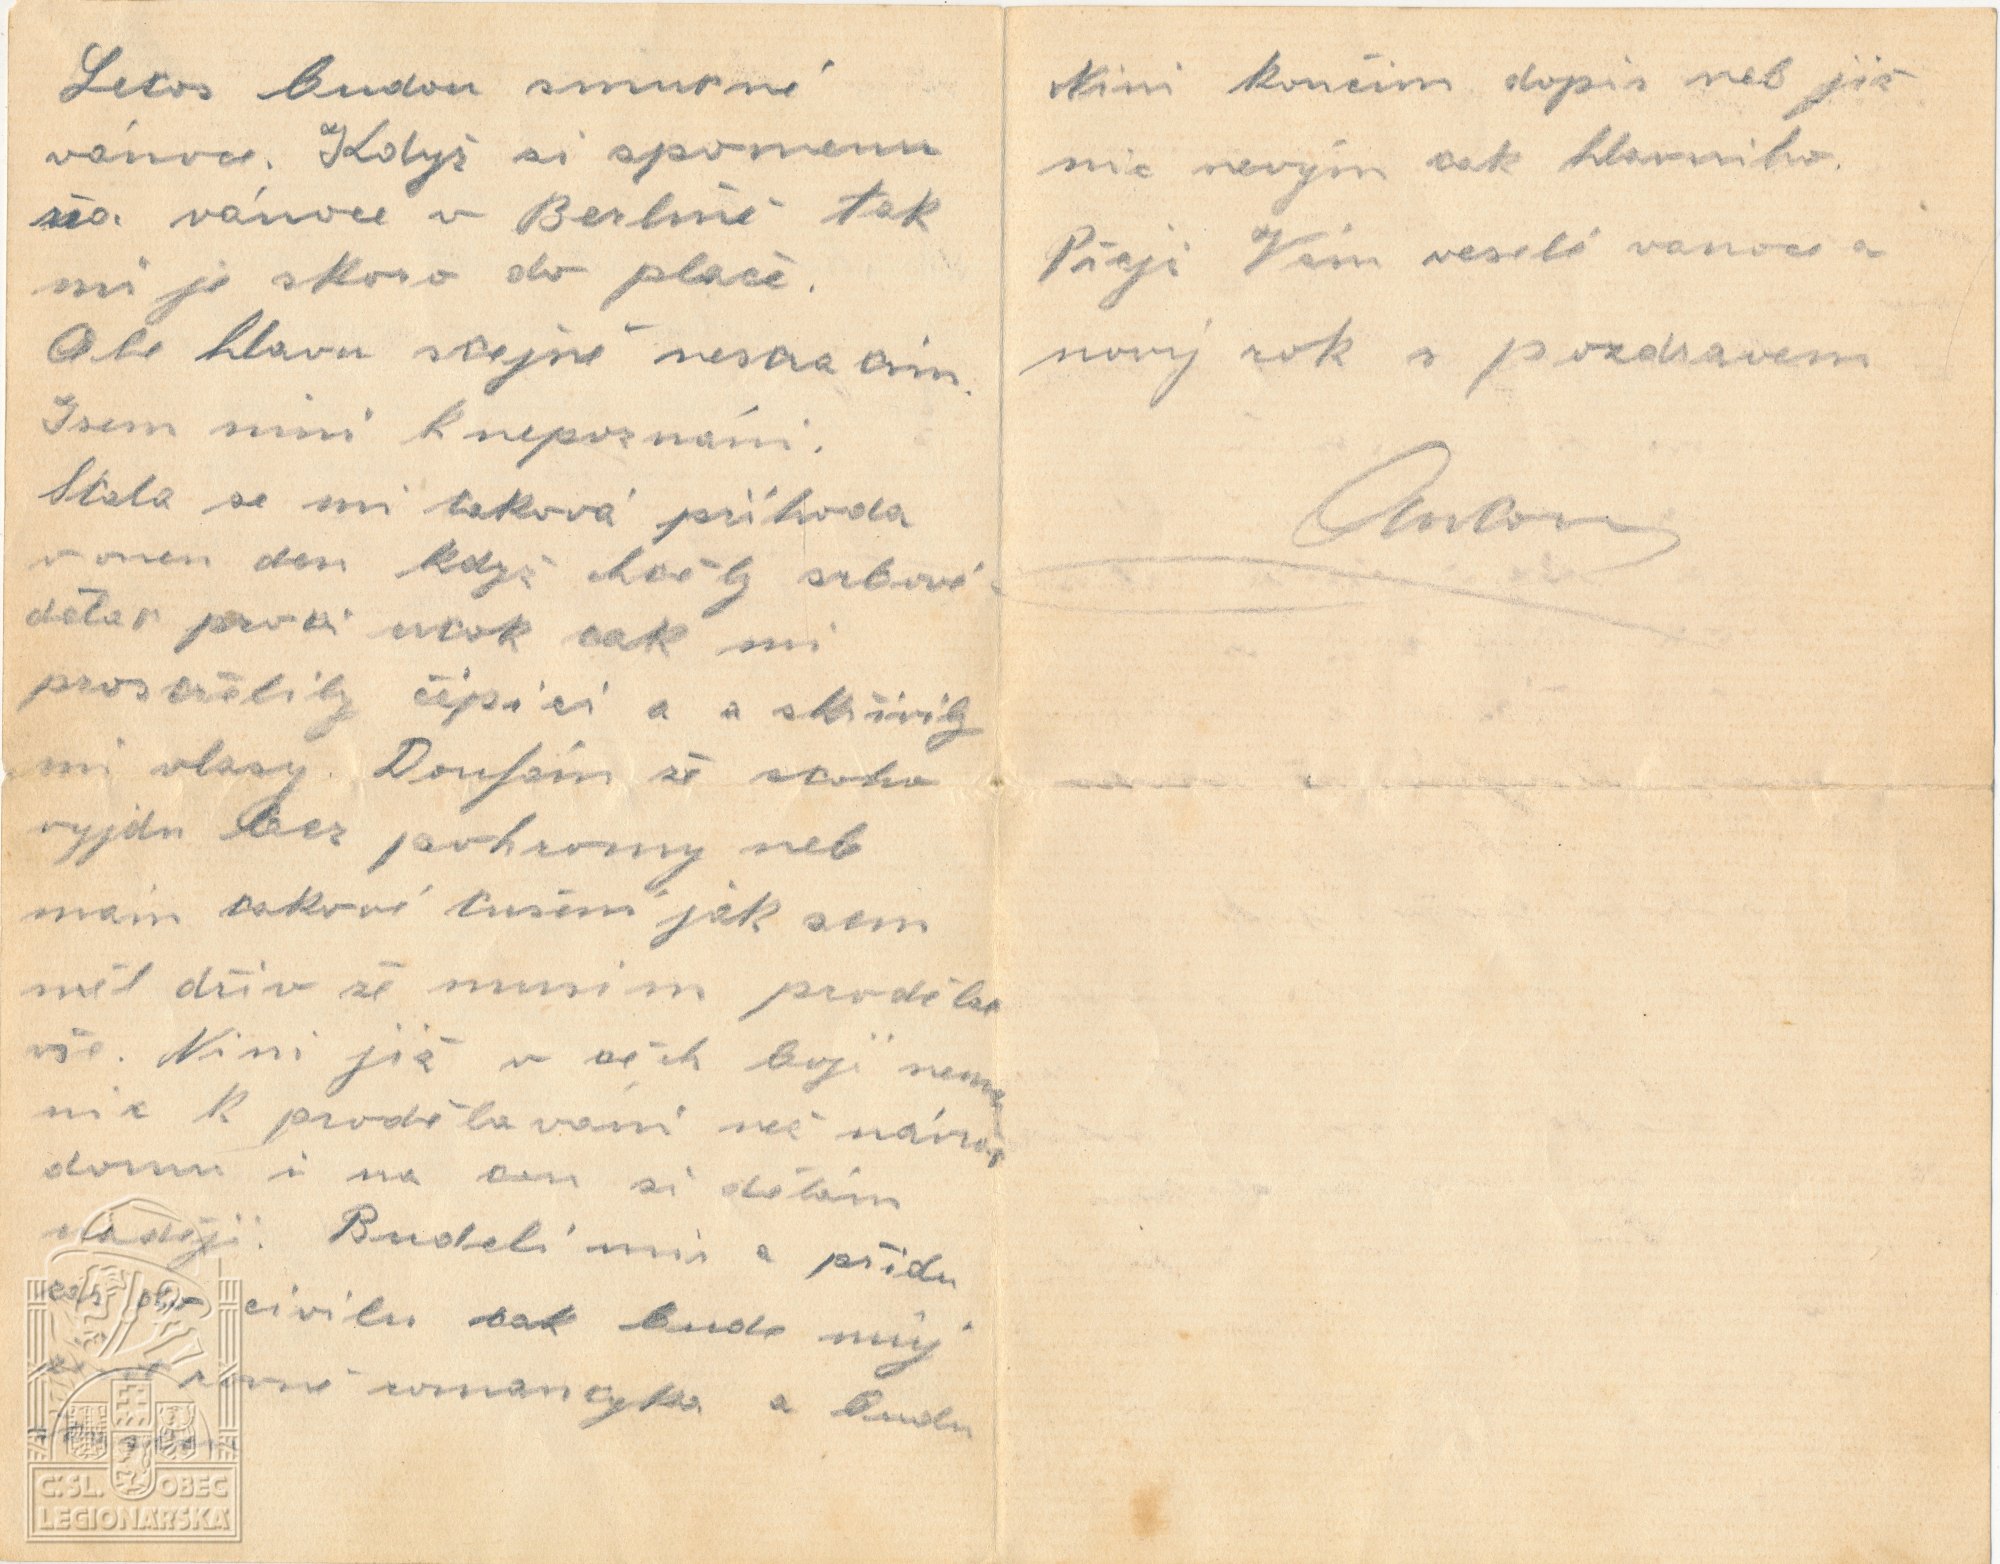 Letos budou smutné
vánoce. Když si spomenu
na vánoce v Berlíně tak
mi je skoro do plače.
Ale hlavu stejně nestratim.
Jsem nini k nepoznáni.
Stala se mi taková příhoda
v onen den když chtěly srbové
dělat proti utok tak mi
prostřelily čepici a a skřivily
mi vlasy. Doufám že stoho
vyjdu bez pohromy neb
mám takové tušení jak sem
měl dřiv že musim prodělat
vše. Nini již v těch boji
nic k prodělavání než návrat
domu i na ten si dělám
naději. Budeli mir a přidu
do civilu tak bude můj
romantyka a budu
Nini končim dopis neb již
nic nevým tak hlavniho.
Přeji Vám veselé vanoce a
nový rok s pozdravem
Anton
Č.SL. OBEC
LEGIONÁŘSKÁ